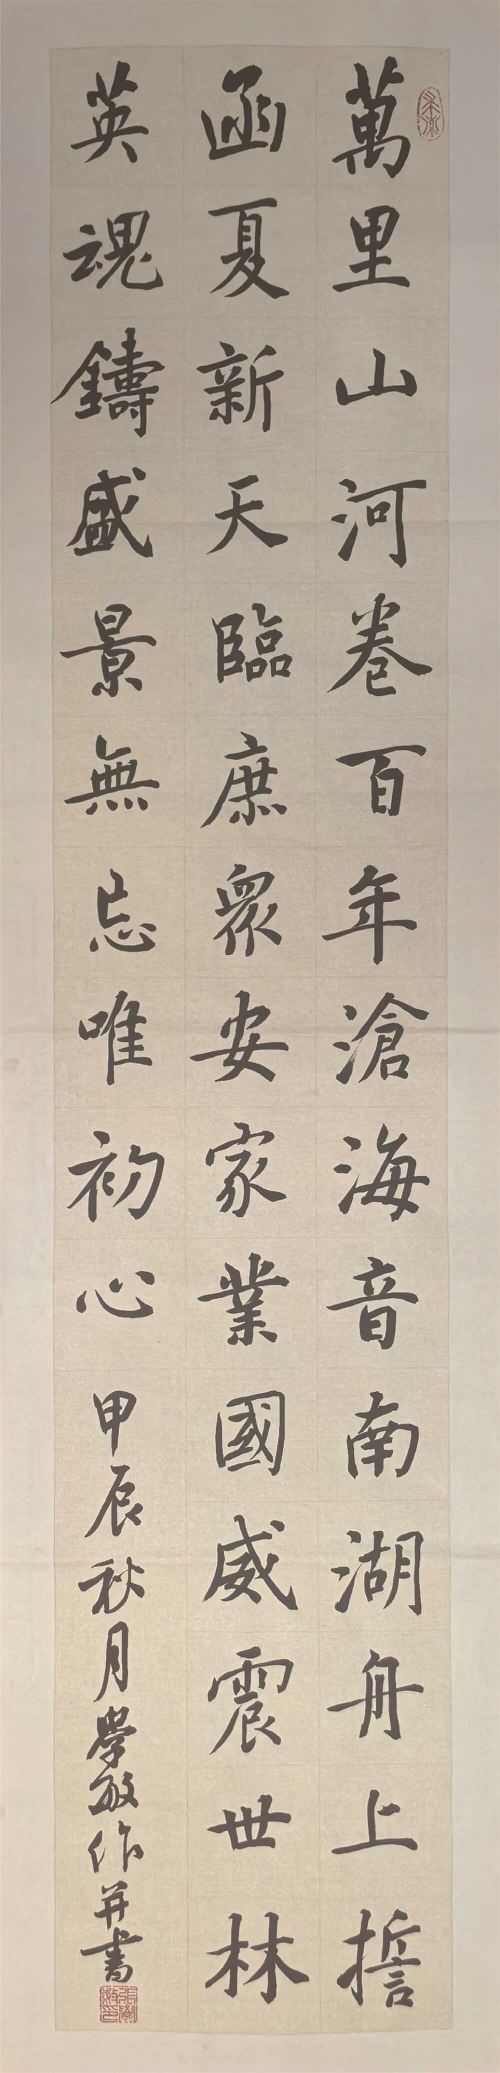 萬里山河卷百年滄海音南湖舟上誓
函夏新天臨庶眾安家業國威震世林
英魂鑄盛景無忘唯初心
甲辰秋月學敏作并書